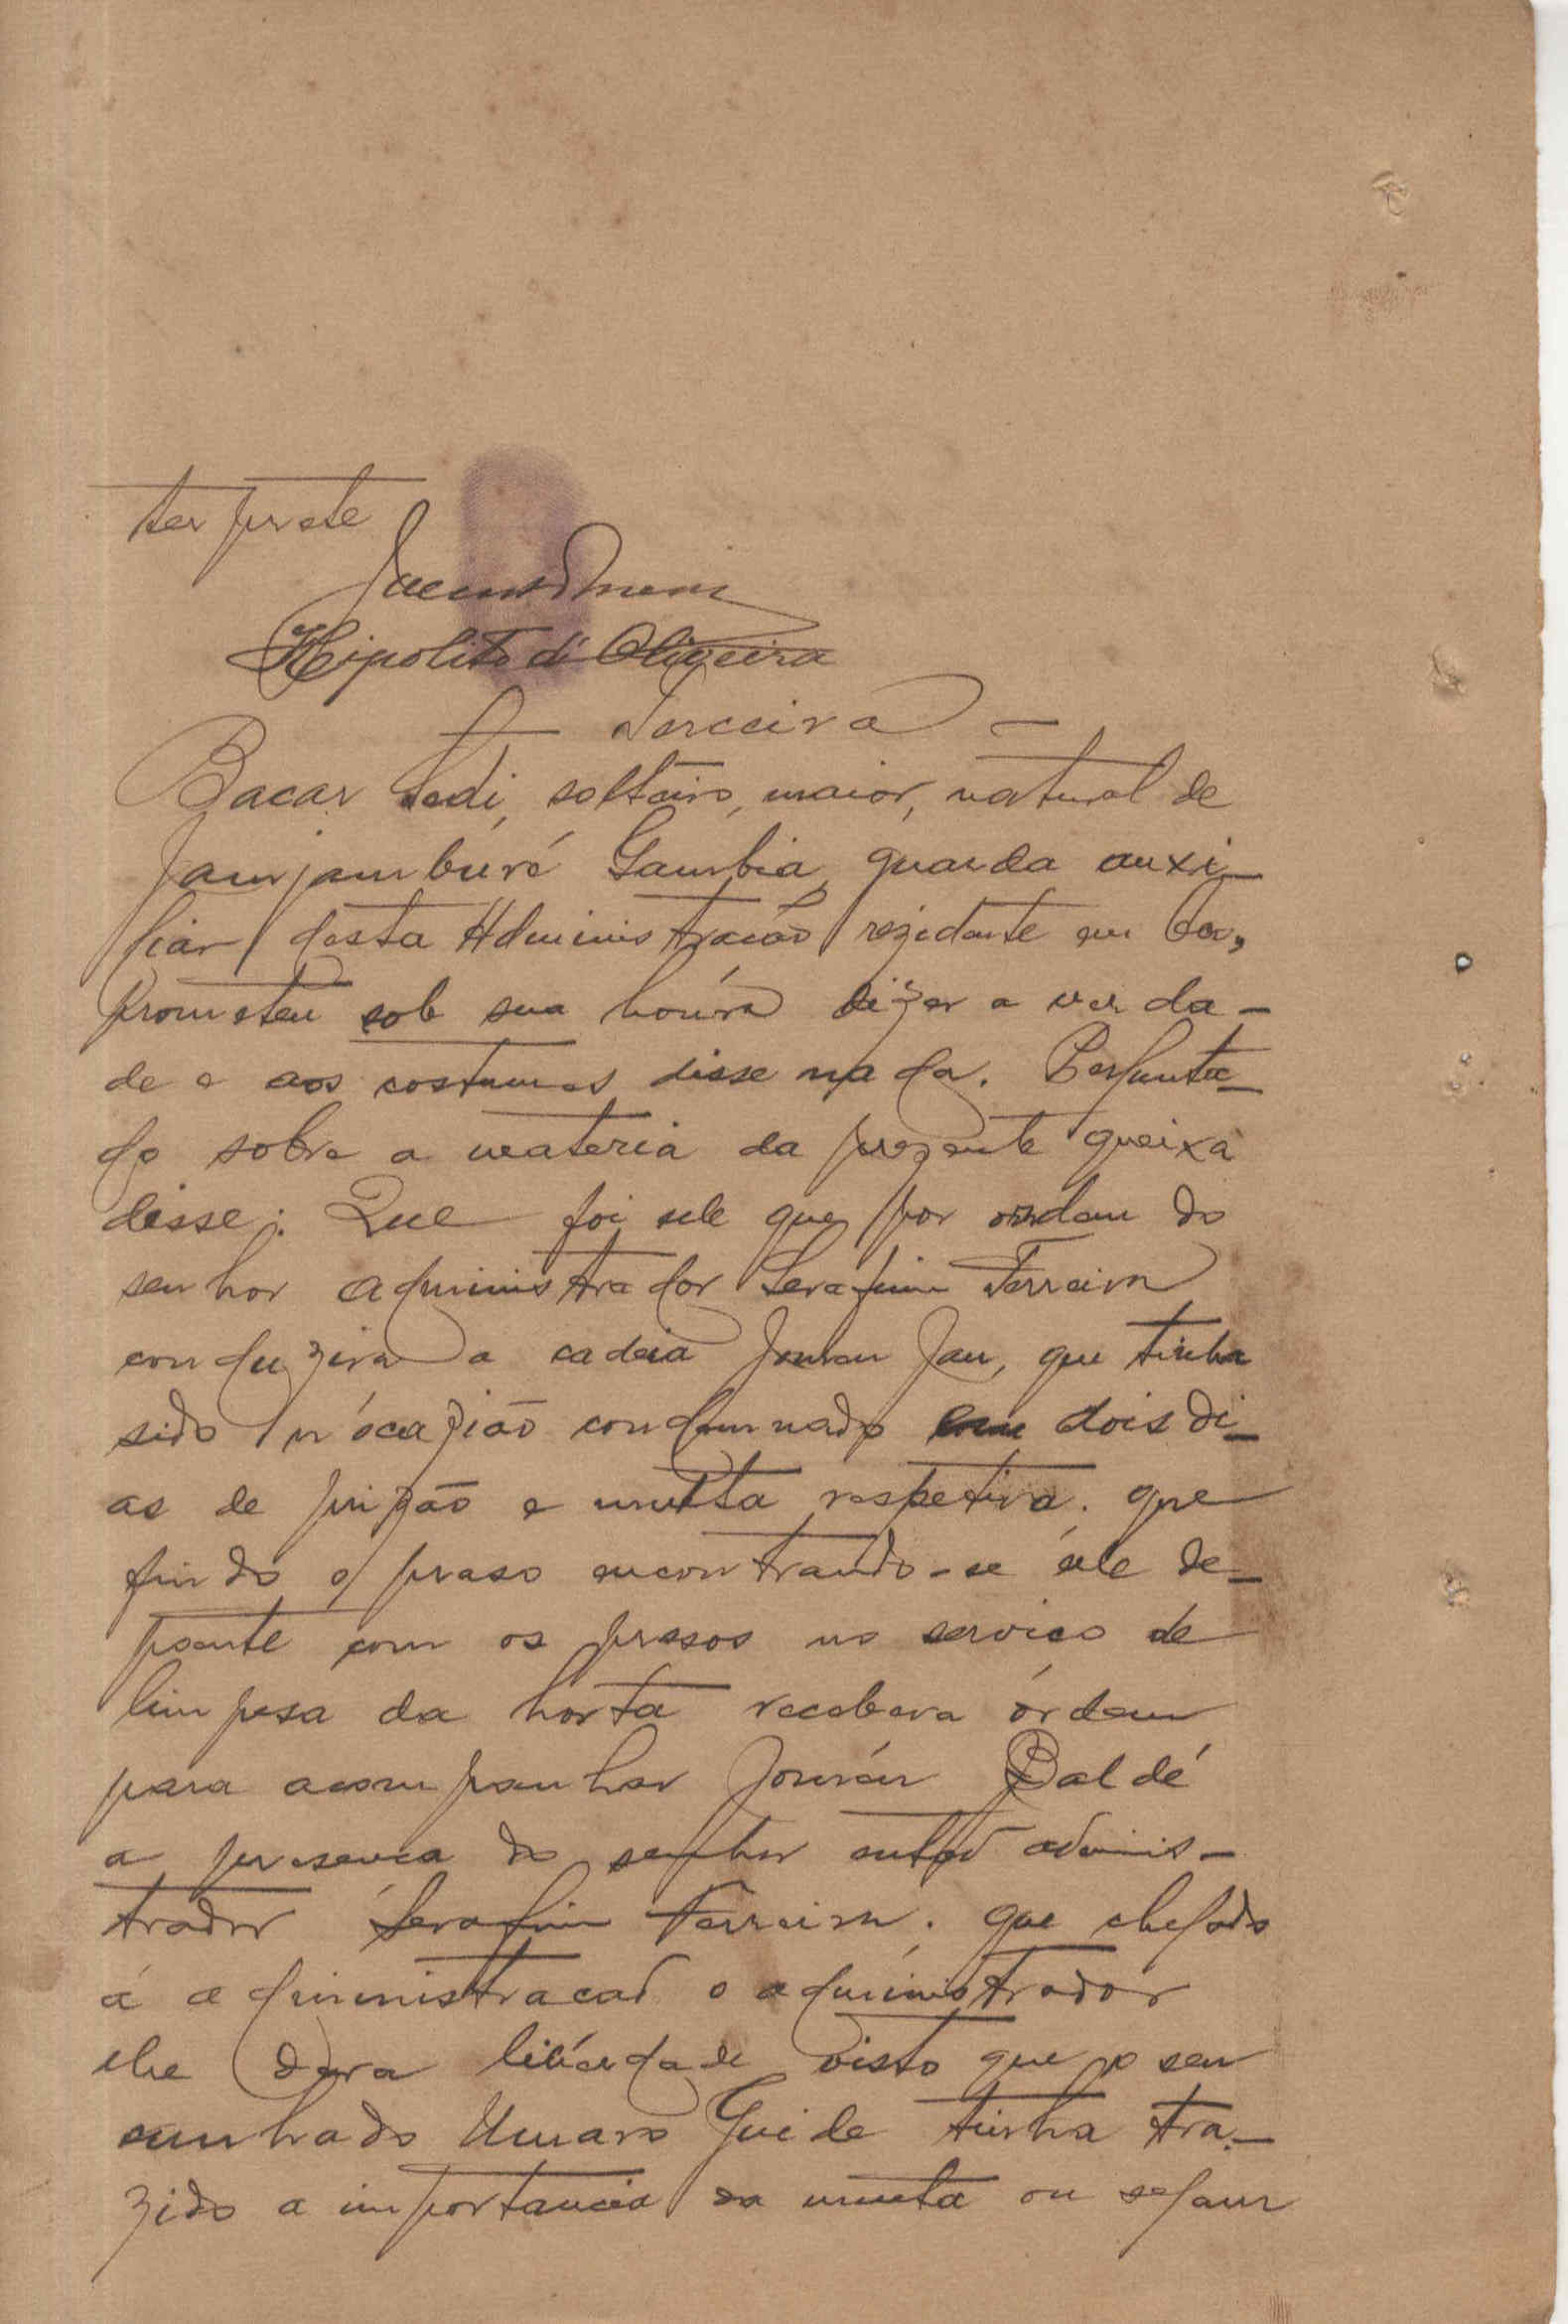 terprete
Hipolito d'Oliveira
— Terceira —
Bacar Sedi, solteiro, maior, natural de
Jamjamburé Gambia, guarda auxi-
liar desta Administracão rezidente em
prometeu sob sua honra dizer a verda-
de e aos costumes disse nada. Pergunta-
do sobre a materia da prezente queixa
disse: Que foi ele que por ordem do
senhor administrador Serafim Ferreira
conduzira a cadeia que tinha
sido n'ócazião condemnado em dois di-
as de prizão e multa respetiva. que
findo o praso encontrando-se ele de-
poente com os presos no servico de
limpesa da horta recebera órdem
para acompanhar Baldé
a presenca do senhor adminis-
trador Serafim Ferreira. que chegado
á administracaõ o administrador
lhe dera libérdade visto que o seu
cunhado Umaro Guide tinha tra-
zido a importancia da multa ou sejam